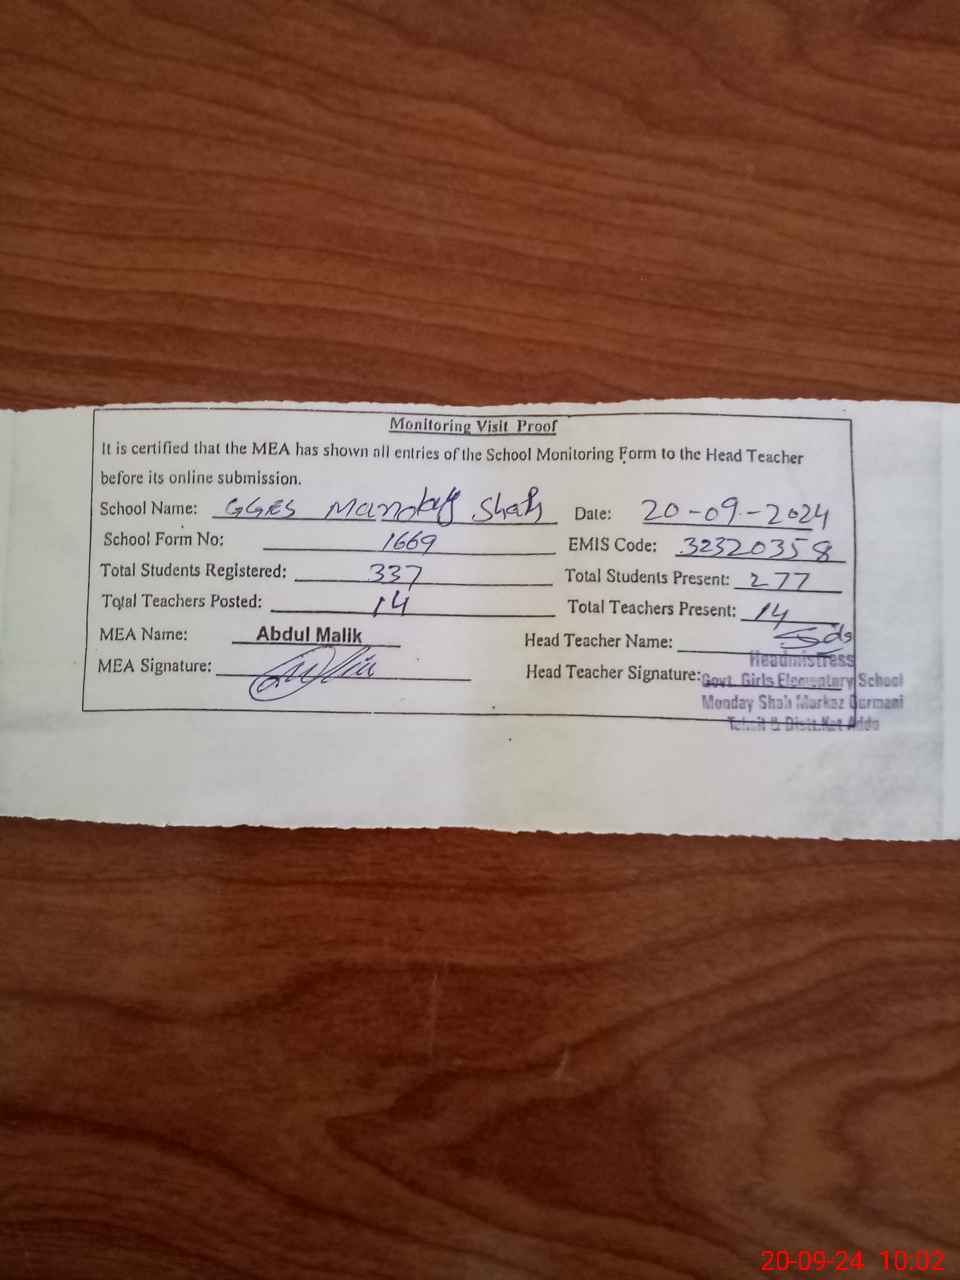 Monitoring Visit Proof
It is certified that the MEA has shown all entries of the School Monitoring Form to the Head Teacher
before its online submission.
School Name: GGES Manday Shah Date: 20-09-2024
School Form No: 1669 EMIS Code: 32320358
Total Students Registered: 337 Total Students Present: 277
Total Teachers Posted: 14 Total Teachers Present: 14
MEA Name: Abdul Malik Head Teacher Name:
MEA Signature: Head Teacher Signature:
Headmistress
Govt. Girls Elementary School
Monday Shah Markaz Gurmani
Tehsil & Distt.Kot Addu
20-09-24 10:02